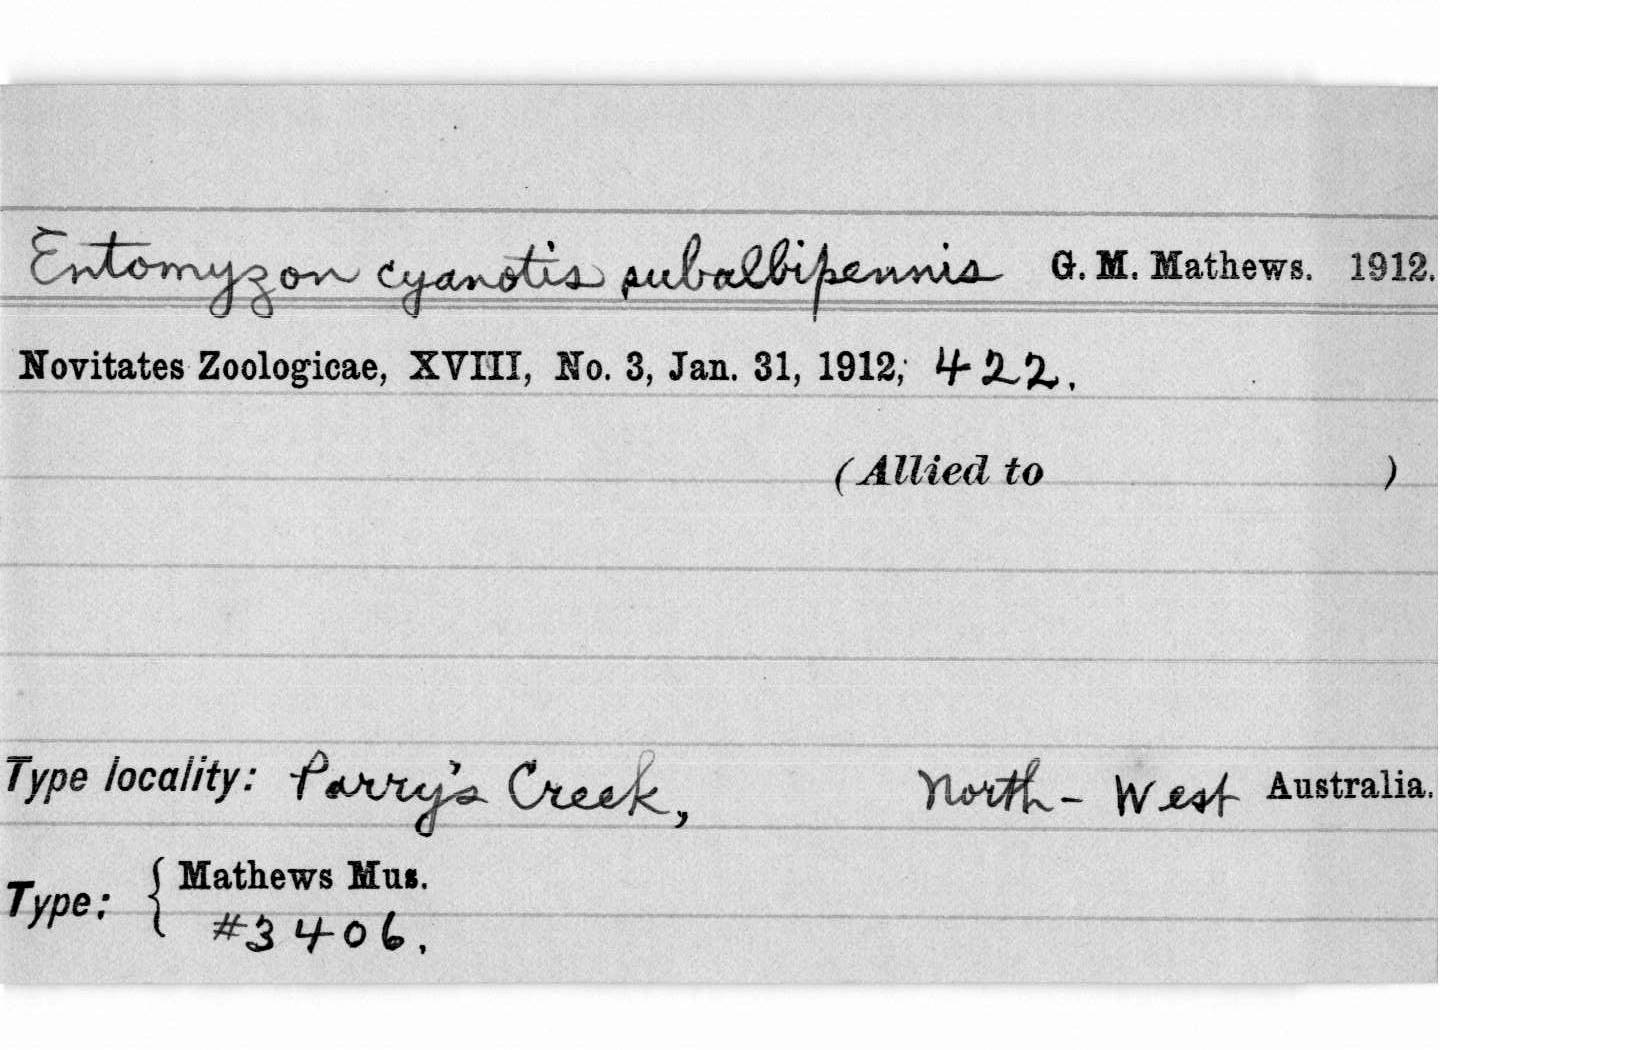 Entomyzon cyanotis subalbipennis G. M. Mathews. 1912.
Novitates Zoologicae, XVIII, No. 3, Jan. 31, 1912; 422.
(Allied to )
Type locality: Parry's Creek, North-West Australia.
Type: { Mathews Mus.
#3406.